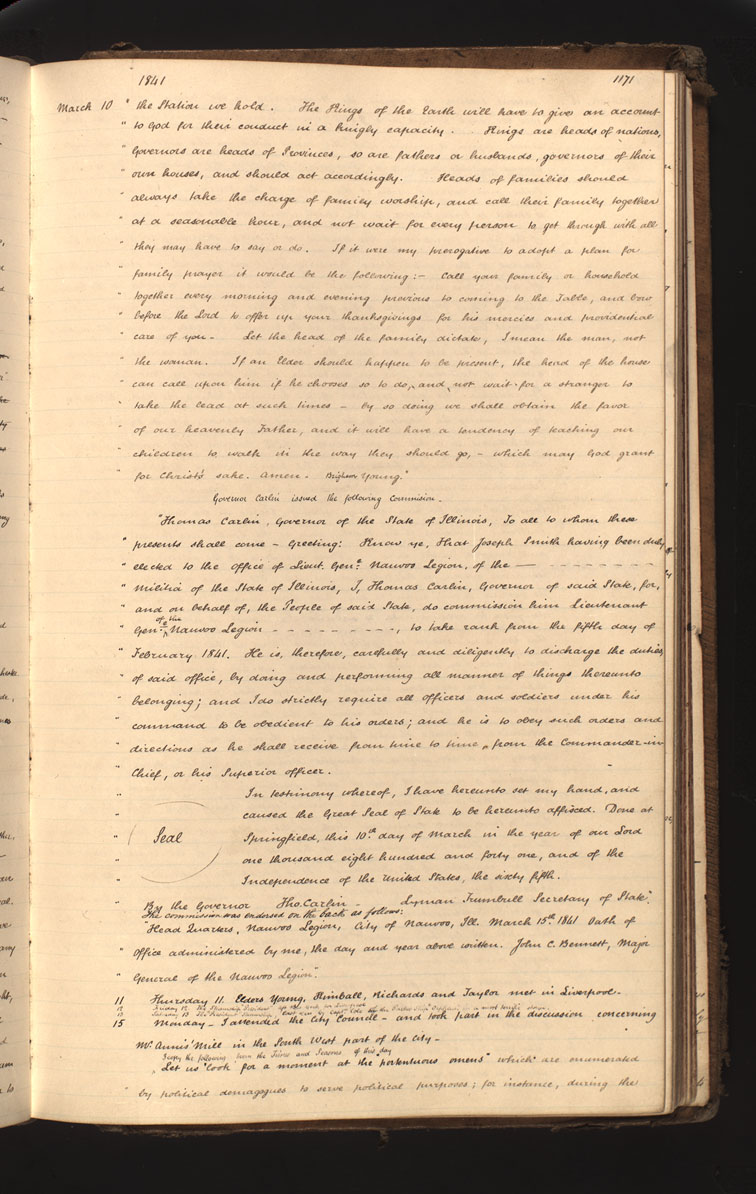 1841 1171
March 10 " the Station we hold. The Kings of the Earth will have to give an account
" to God for their conduct in a kingly capacity. Kings are heads of nations,
" Governors are heads of Provinces, so are fathers or husbands, governors of their
" own houses, and should act accordingly. Heads of families should
" always take the charge of family worship, and call their family together
" at a seasonable hour, and not wait for every person to get through with all
" they may have to say or do. If it were my prerogative to adopt a plan for
" family prayer it would be the following:- Call your family or household
" together every morning and evening previous to coming to the Table, and bow
" before the Lord to offer up your thanksgivings for his mercies and providential
" care of you- Let the head of the family dictate, I mean the man, not
" the woman. If an Elder should happen to be present, the head of the house
" can call upon him if he chooses so to do, and not wait for a stranger to
" take the lead at such times – by so doing we shall obtain the favor
" of our heavenly Father, and it will have a tendency of teaching our
" children to walk in the way they should go, – which may God grant
" for Christ's sake. Amen. Brigham Young."
Governor Carlin issued the following Commission.
"Thomas Carlin, Governor of the State of Illinois, To all to whom these
" presents shall come – Greeting: Know ye, that Joseph Smith having been duly
" elected to the office of Lieut. Genl. Nauvoo Legion, of the — - - - - - - - -
" Militia of the State of Illinois, I, Thomas Carlin, Governor of said State, for,
" and on behalf of, the People of said State, do commission him Lieutenant
of the
" Genl. ^ Nauvoo Legion - - - - - - - - -, to take rank from the fifth day of
" February 1841. He is, therefore, carefully and diligently to discharge the duties
" of said office, by doing and performing all manner of things thereunto
" belonging; and I do strictly require all officers and soldiers under his
" command to be obedient to his orders; and he is to obey such orders and
" directions as he shall receive from time to time, from the Commander-in-
" Chief, or his Superior officer.
" In testimony whereof, I have hereunto set my hand, and
" caused the Great Seal of State to be hereunto affixed. Done at
" Seal Springfield, this 10th. day of March in the year of our Lord
" one thousand eight hundred and forty one, and of the
" Independence of the United States, the sixty fifth.
" By the Governor Tho. Carlin – Lyman Trumbull Secretary of State".
The commission was endorsed on the back as follows:
"Head Quarters, Nauvoo Legion, City of Nauvoo, Ill. March 15th. 1841 Oath of
" office administered by me, the day and year above written. John C. Bennett, Major
" General of the Nauvoo Legion".
11 Thursday 11. Elders Young, Kimball, Richards and Taylor met in Liverpool-
15 Monday – I attended the City Council – and took part in the discussion concerning
Mr. Annis' Mill in the South West part of the City –
I copy the following from the Times and Seasons of this day
" Let us "look for a moment at the portentous omens" which are enumerated
" by political demagogues to serve political purposes; for instance, during the